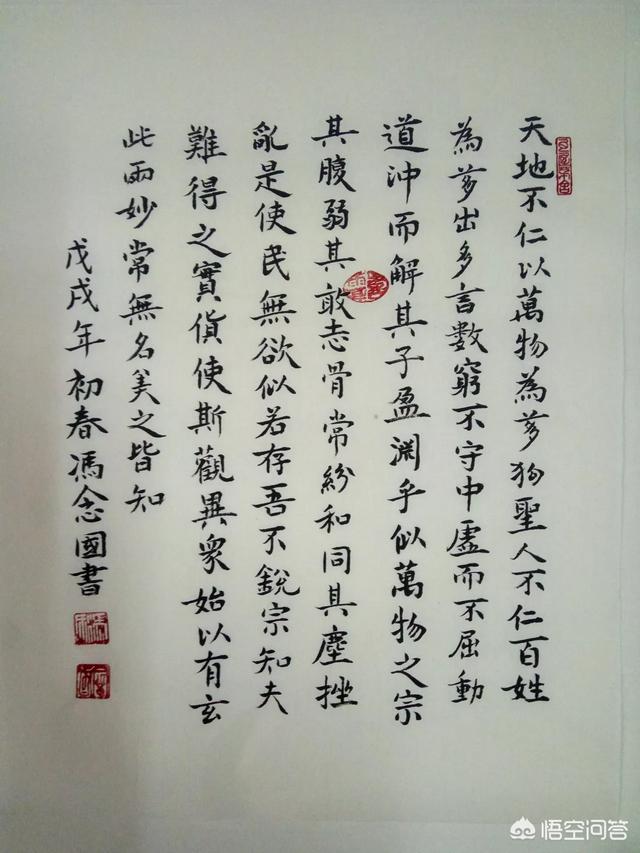 天地不仁以萬物為芻狗聖人不仁百姓
為芻出多言數窮不守中虛而不屈動
道沖而解其子盈淵乎似萬物之宗
其腹弱其敢志骨常紛和同其塵挫
亂是使民無欲似若存吾不銳宗知夫
難得之實貨使斯觀異眾始以有玄
此兩妙常無名美之皆知
戊戌年初春馮念國書
悟空问答